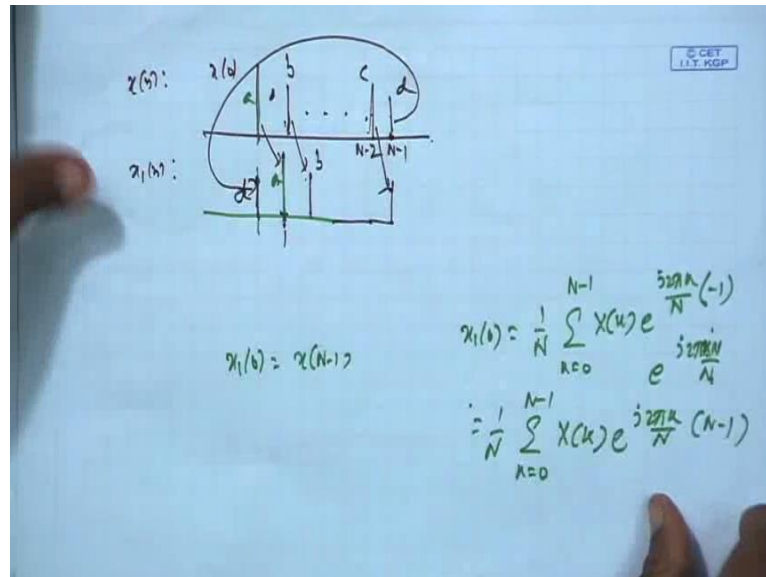 © CET
I.I.T. KGP
x(n): x(0) b c d
a . . . .
N-2 N-1
x₁(n): a b
1
x₁(0) = x(N-1)
x₁(0) = 1/N ∑_{k=0}^{N-1} X(k) e^{j2πk/N (-1)}
e^{j2πkN/N}
= 1/N ∑_{k=0}^{N-1} X(k) e^{j2πk/N (N-1)}